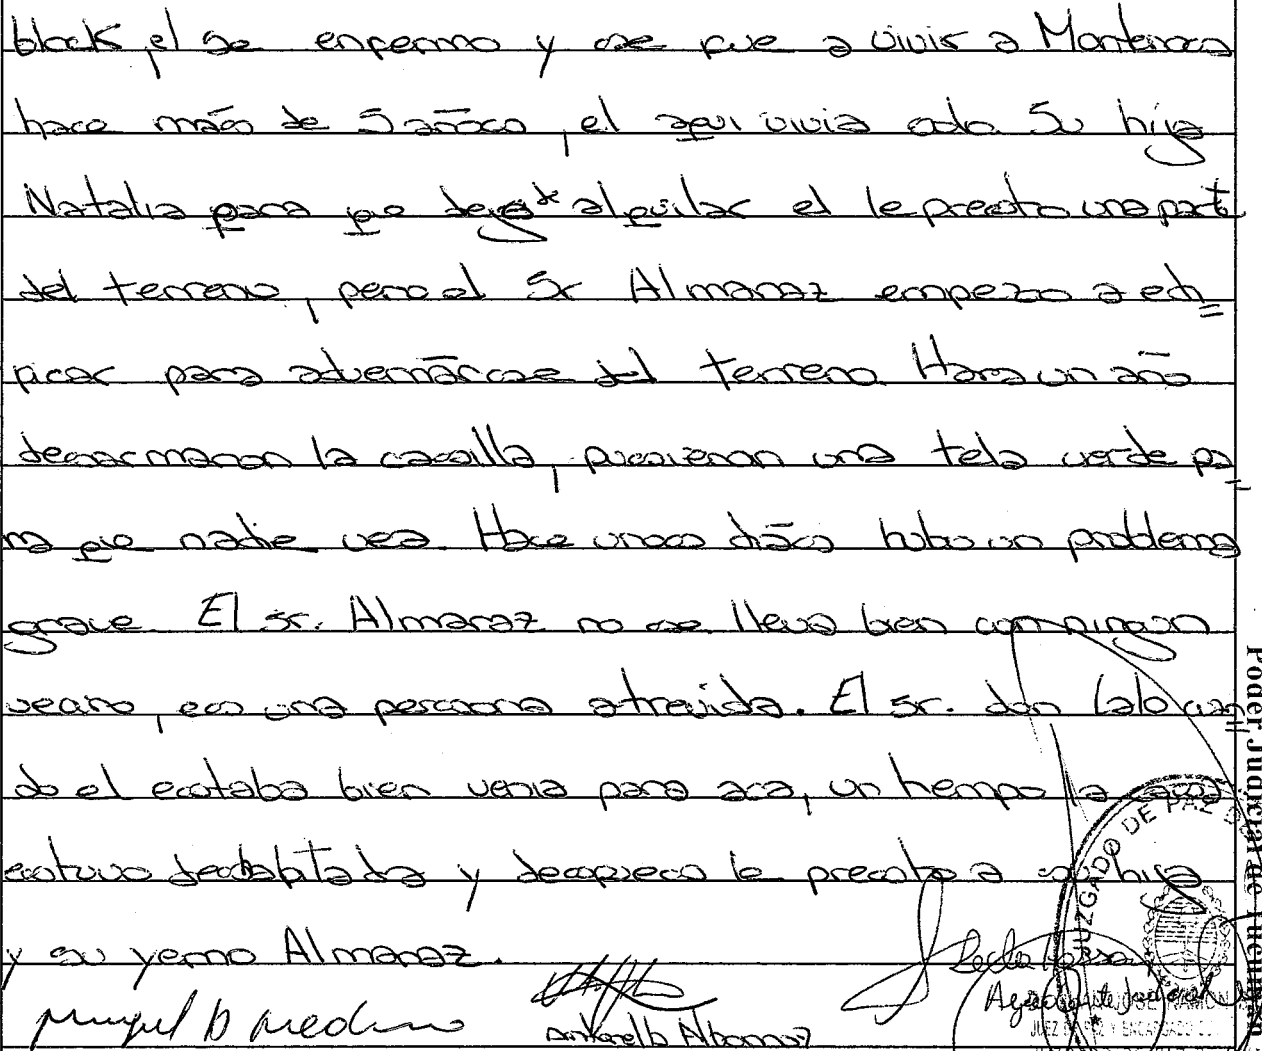 block, el se enfermo y se fue a vivir a Monteros
hace más de 5 años, el aqui vivia solo. Su hija
Natalia para que deje de alquilar el le presto una part
del terreno, pero el Sr Almaraz empezo a edi
ficar para adueñarse del terreno. Hara un año
desarmaron la casilla, pusieron una tela verde pa
ra que nadie vea. Hace unos días hubo un problema
grave. El sr. Almaraz no se lleva bien con ningun
vecino, es una persona atrevida. El sr. don Lalo cuan
do el estaba bien venia para aca, un tiempo la casa
estuvo deshabitada y despues le presto a su hija
y su yerno Almaraz.
Miguel D Medina
Antonella Albornoz
JUZGADO DE PAZ DE
JOSE RAMON
Poder Judicial de Tucumán